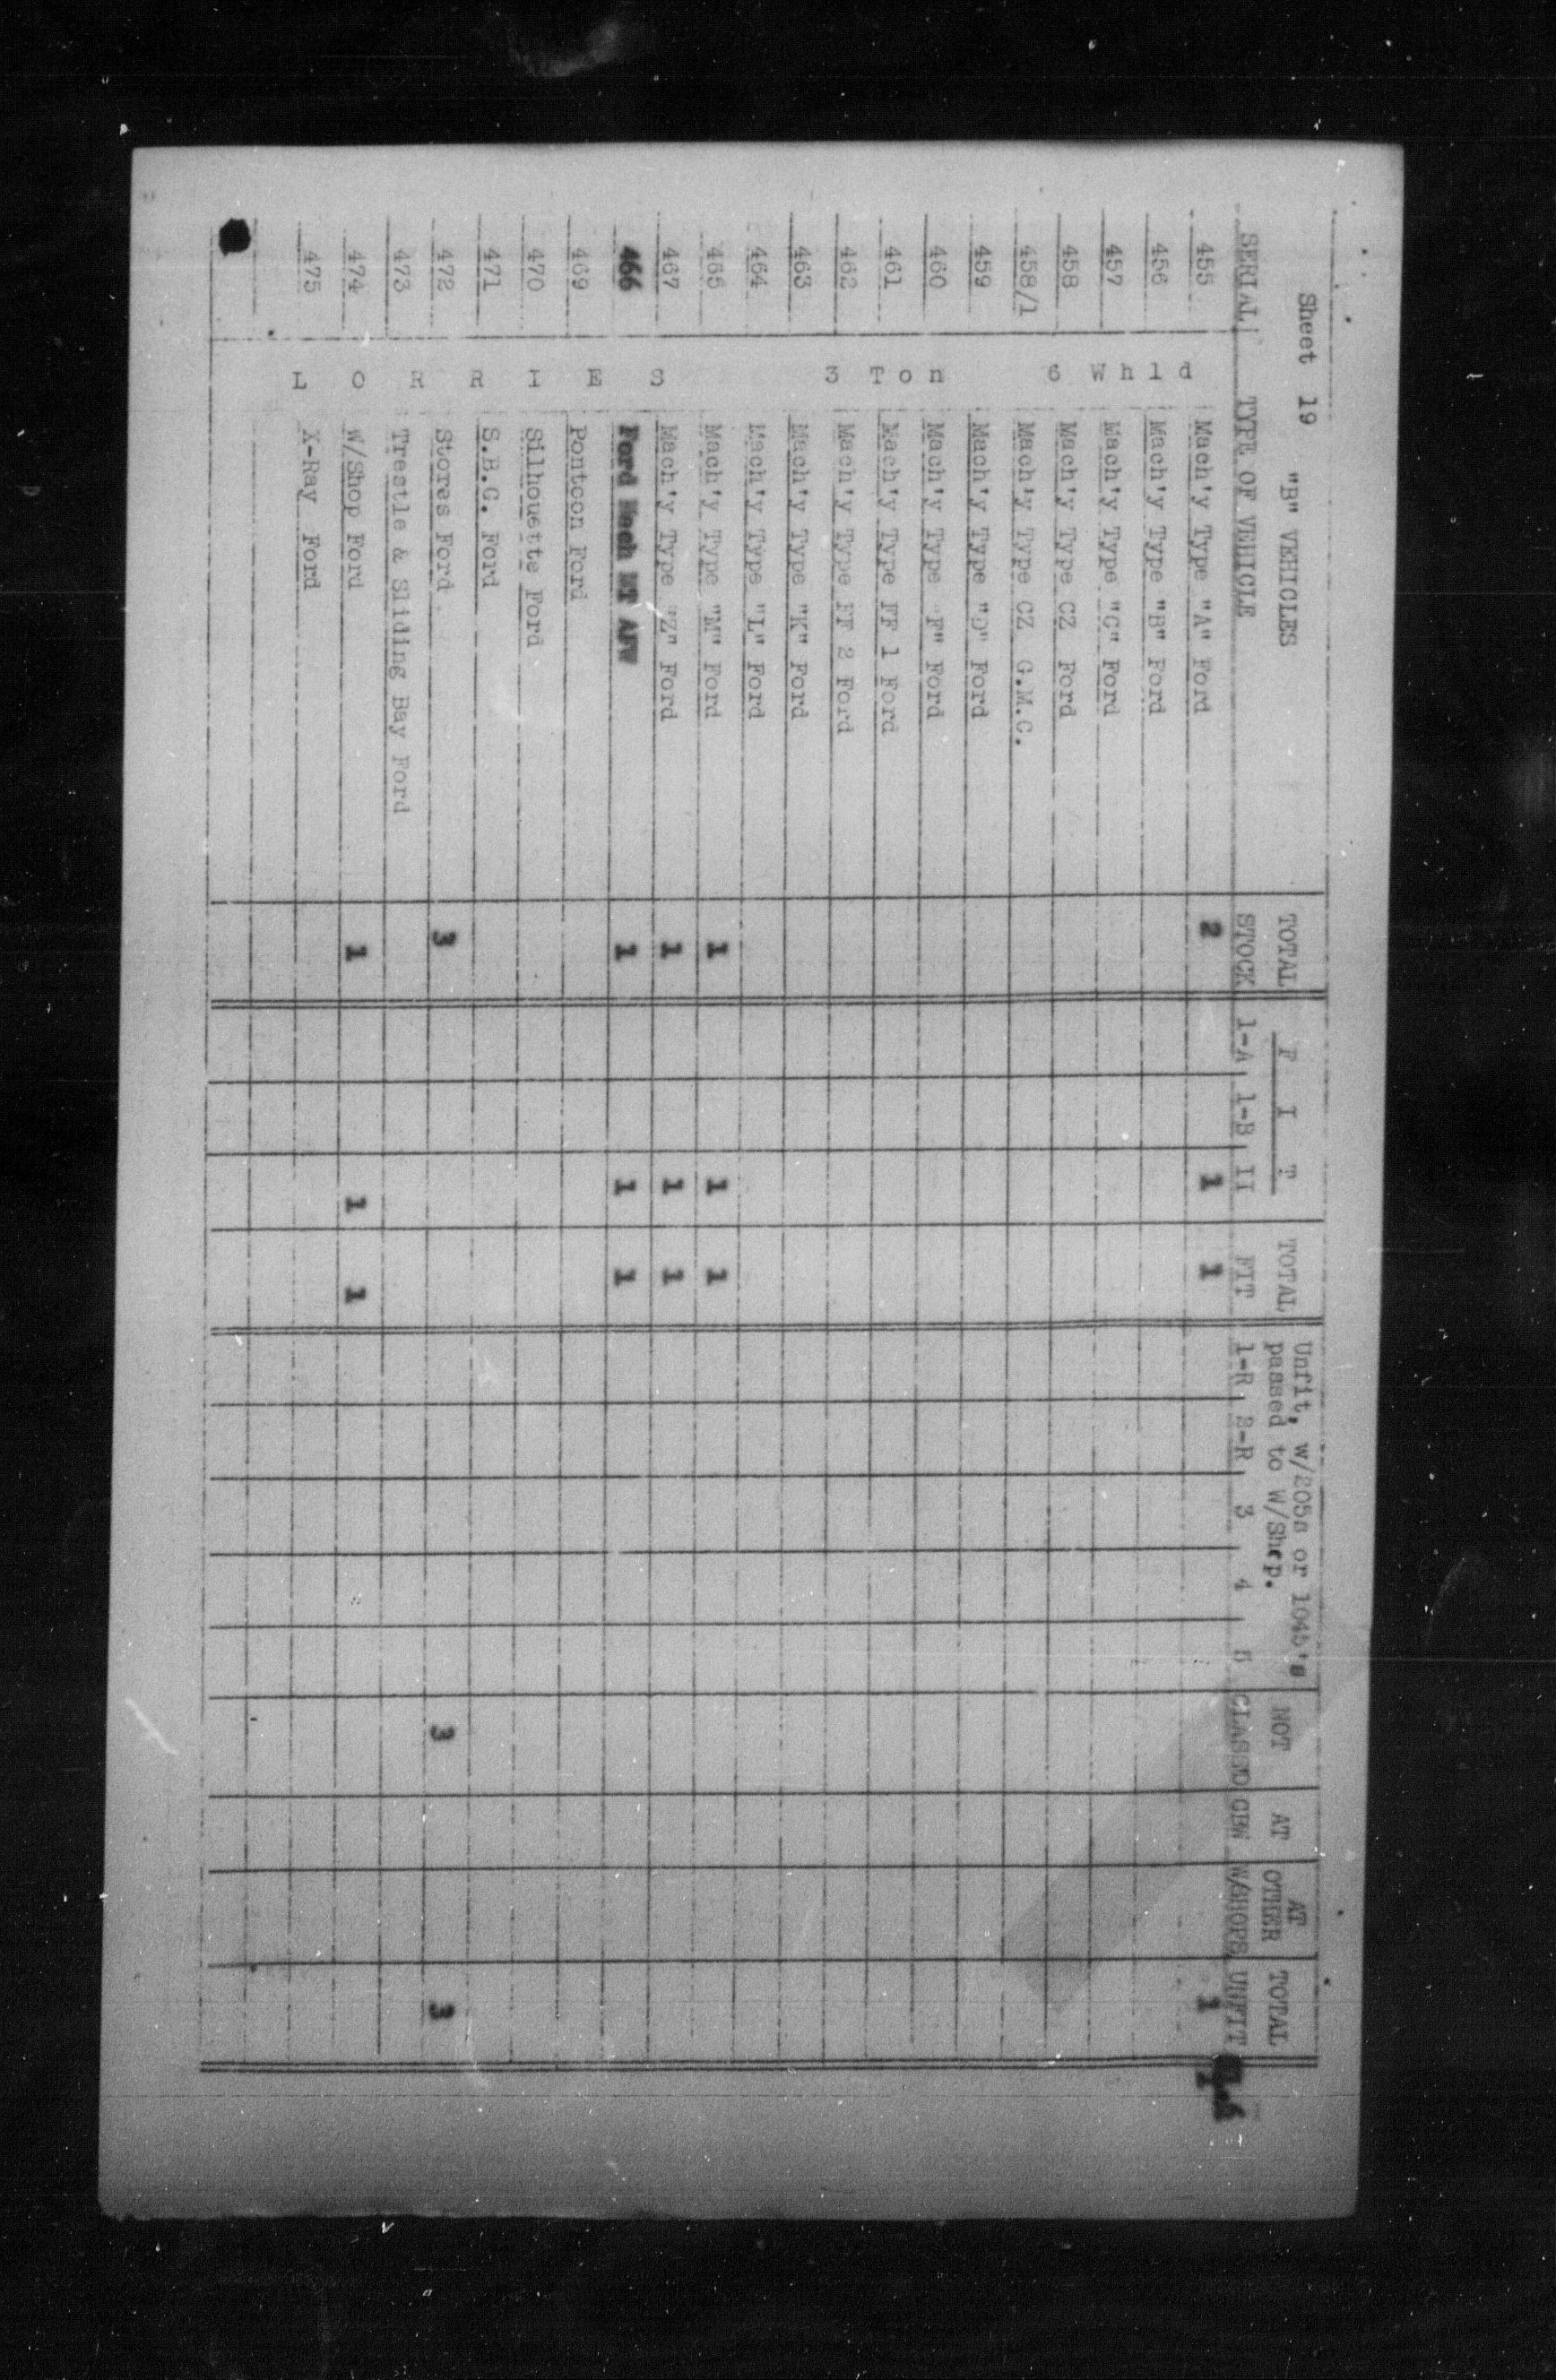 Sheet 19 "B" VEHICLES
TOTAL F I T TOTAL Unfit, w/205s or 1045's NOT AT AT TOTAL
passed to W/Shop. OTHER
SERIAL TYPE OF VEHICLE STOCK 1-A 1-B II FIT 1-R 2-R 3 4 5 CLASSD CBW W/SHOPS UNFIT
6 Whld 3 Ton LORRIES
455 Mach'y Type "A" Ford 2 1 1 1
456 Mach'y Type "B" Ford
457 Mach'y Type "C" Ford
458 Mach'y Type CZ Ford
458/1 Mach'y Type CZ G.M.C.
459 Mach'y Type "D" Ford
460 Mach'y Type "F" Ford
461 Mach'y Type FF 1 Ford
462 Mach'y Type FF 2 Ford
463 Mach'y Type "K" Ford
464 Mach'y Type "L" Ford
465 Mach'y Type "M" Ford 1 1 1
467 Mach'y Type "Z" Ford 1 1 1
466 Ford Mach MT AFW 1 1 1
469 Pontoon Ford
470 Silhouette Ford
471 S.B.G. Ford
472 Stores Ford 3 3 3
473 Trestle & Sliding Bay Ford
474 W/Shop Ford 1 1 1
475 X-Ray Ford